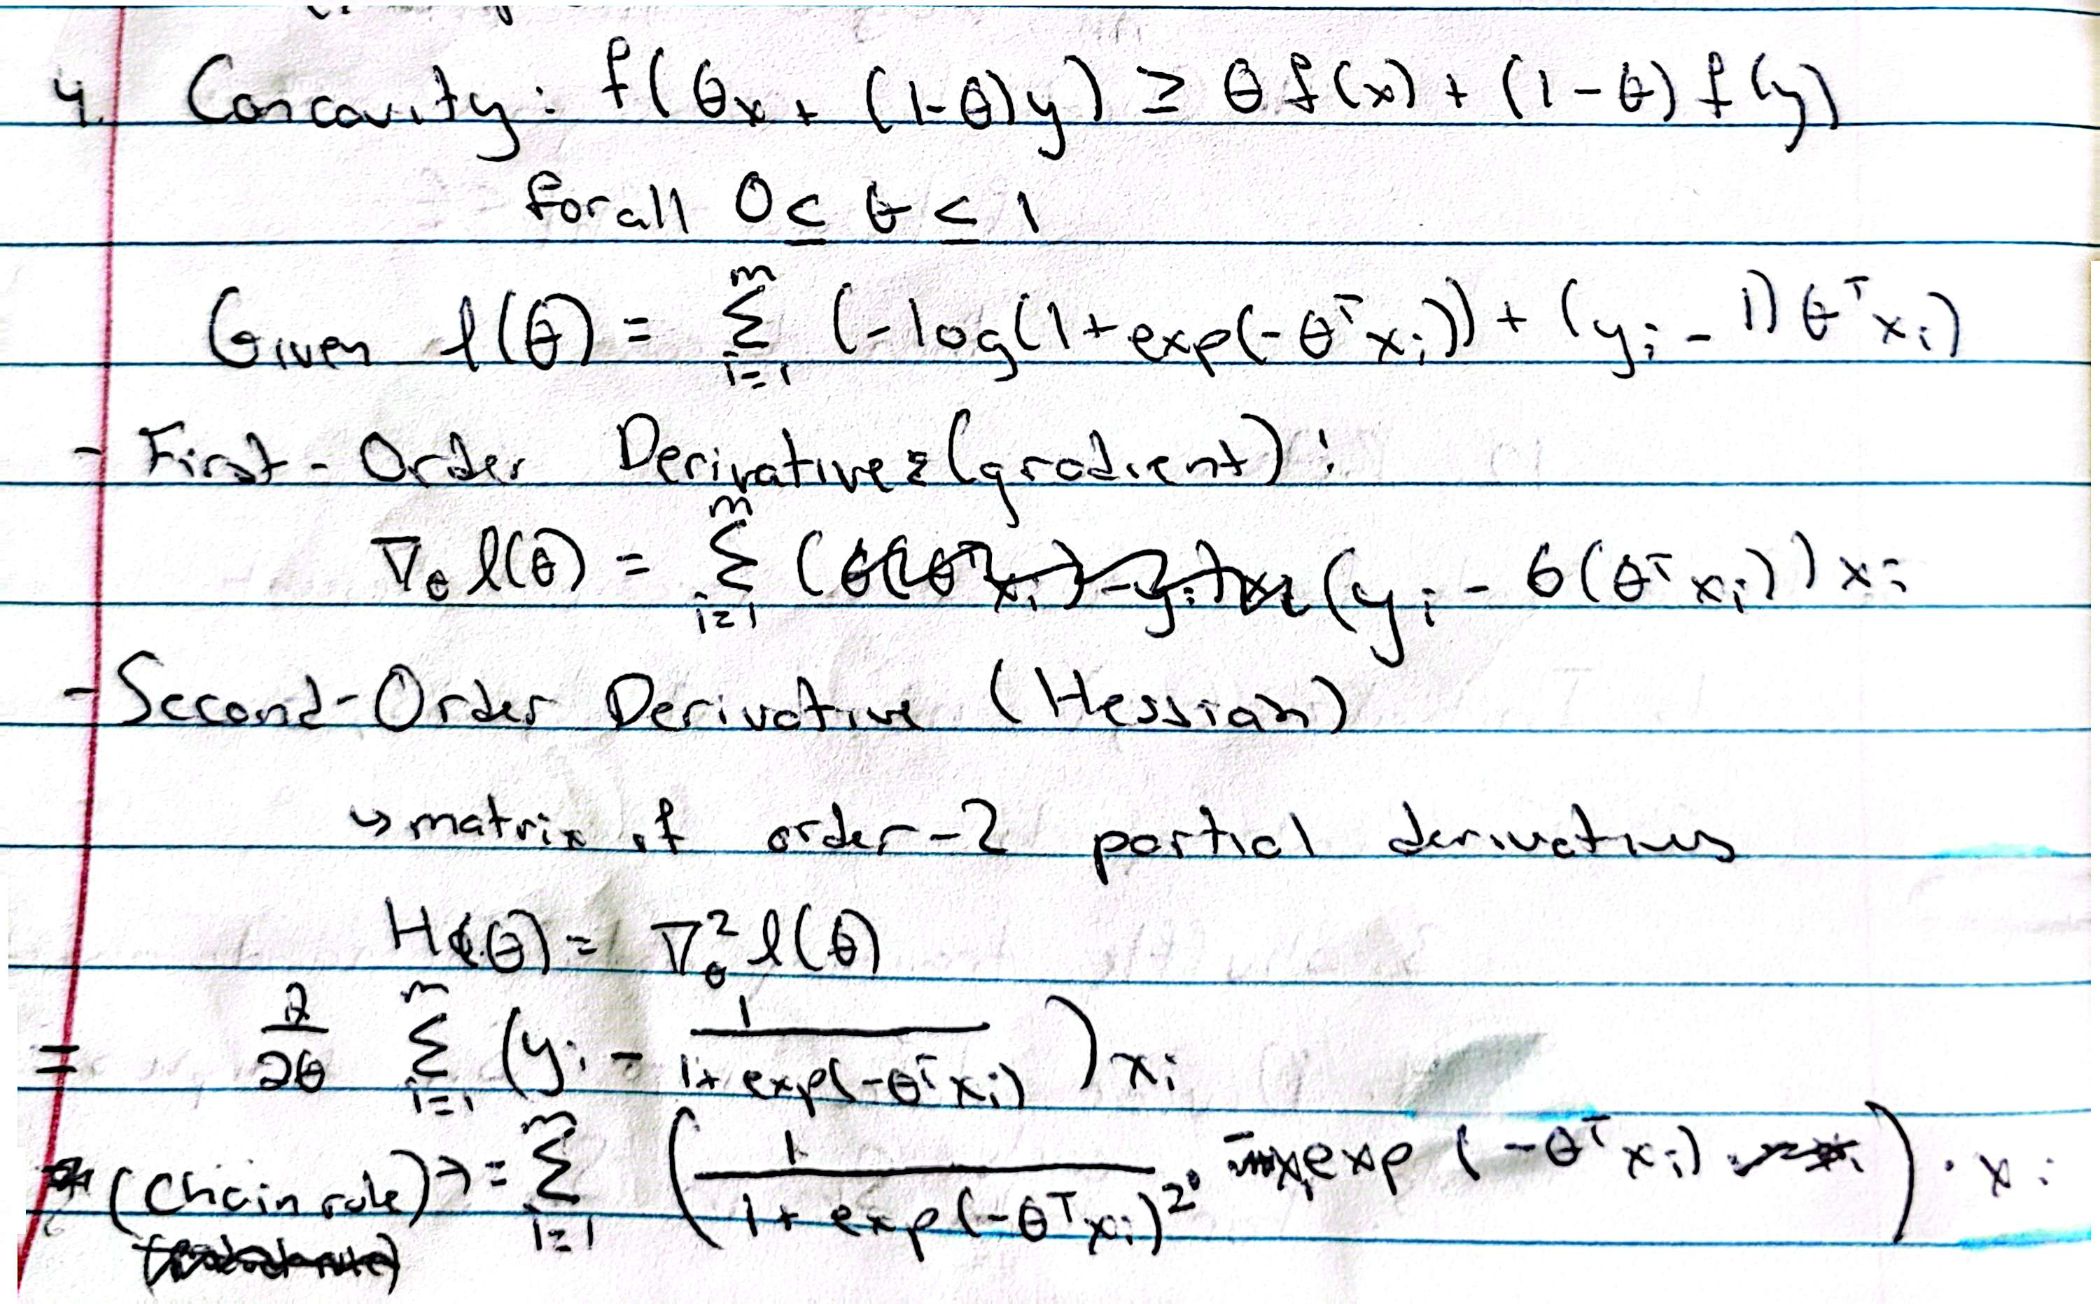 4. Concavity: f(θx + (1-θ)y) ≥ θf(x) + (1-θ)f(y)
for all 0 ≤ θ ≤ 1
Given l(θ) = Σ_{i=1}^{m} (-log(1+exp(-θᵀx_i)) + (y_i - 1)θᵀx_i)
- First-Order Derivative (gradient):
∇_θ l(θ) = Σ_{i=1}^{m} (y_i - σ(θᵀx_i))x_i
- Second-Order Derivative (Hessian)
↳ matrix of order-2 partial derivatives
H(θ) = ∇²_θ l(θ)
= ∂/∂θ Σ_{i=1}^{m} (y_i - 1/(1+exp(-θᵀx_i))) x_i
(Chain rule) → = Σ_{i=1}^{m} (1/(1+exp(-θᵀx_i))² · -x_i exp(-θᵀx_i)) · x_i